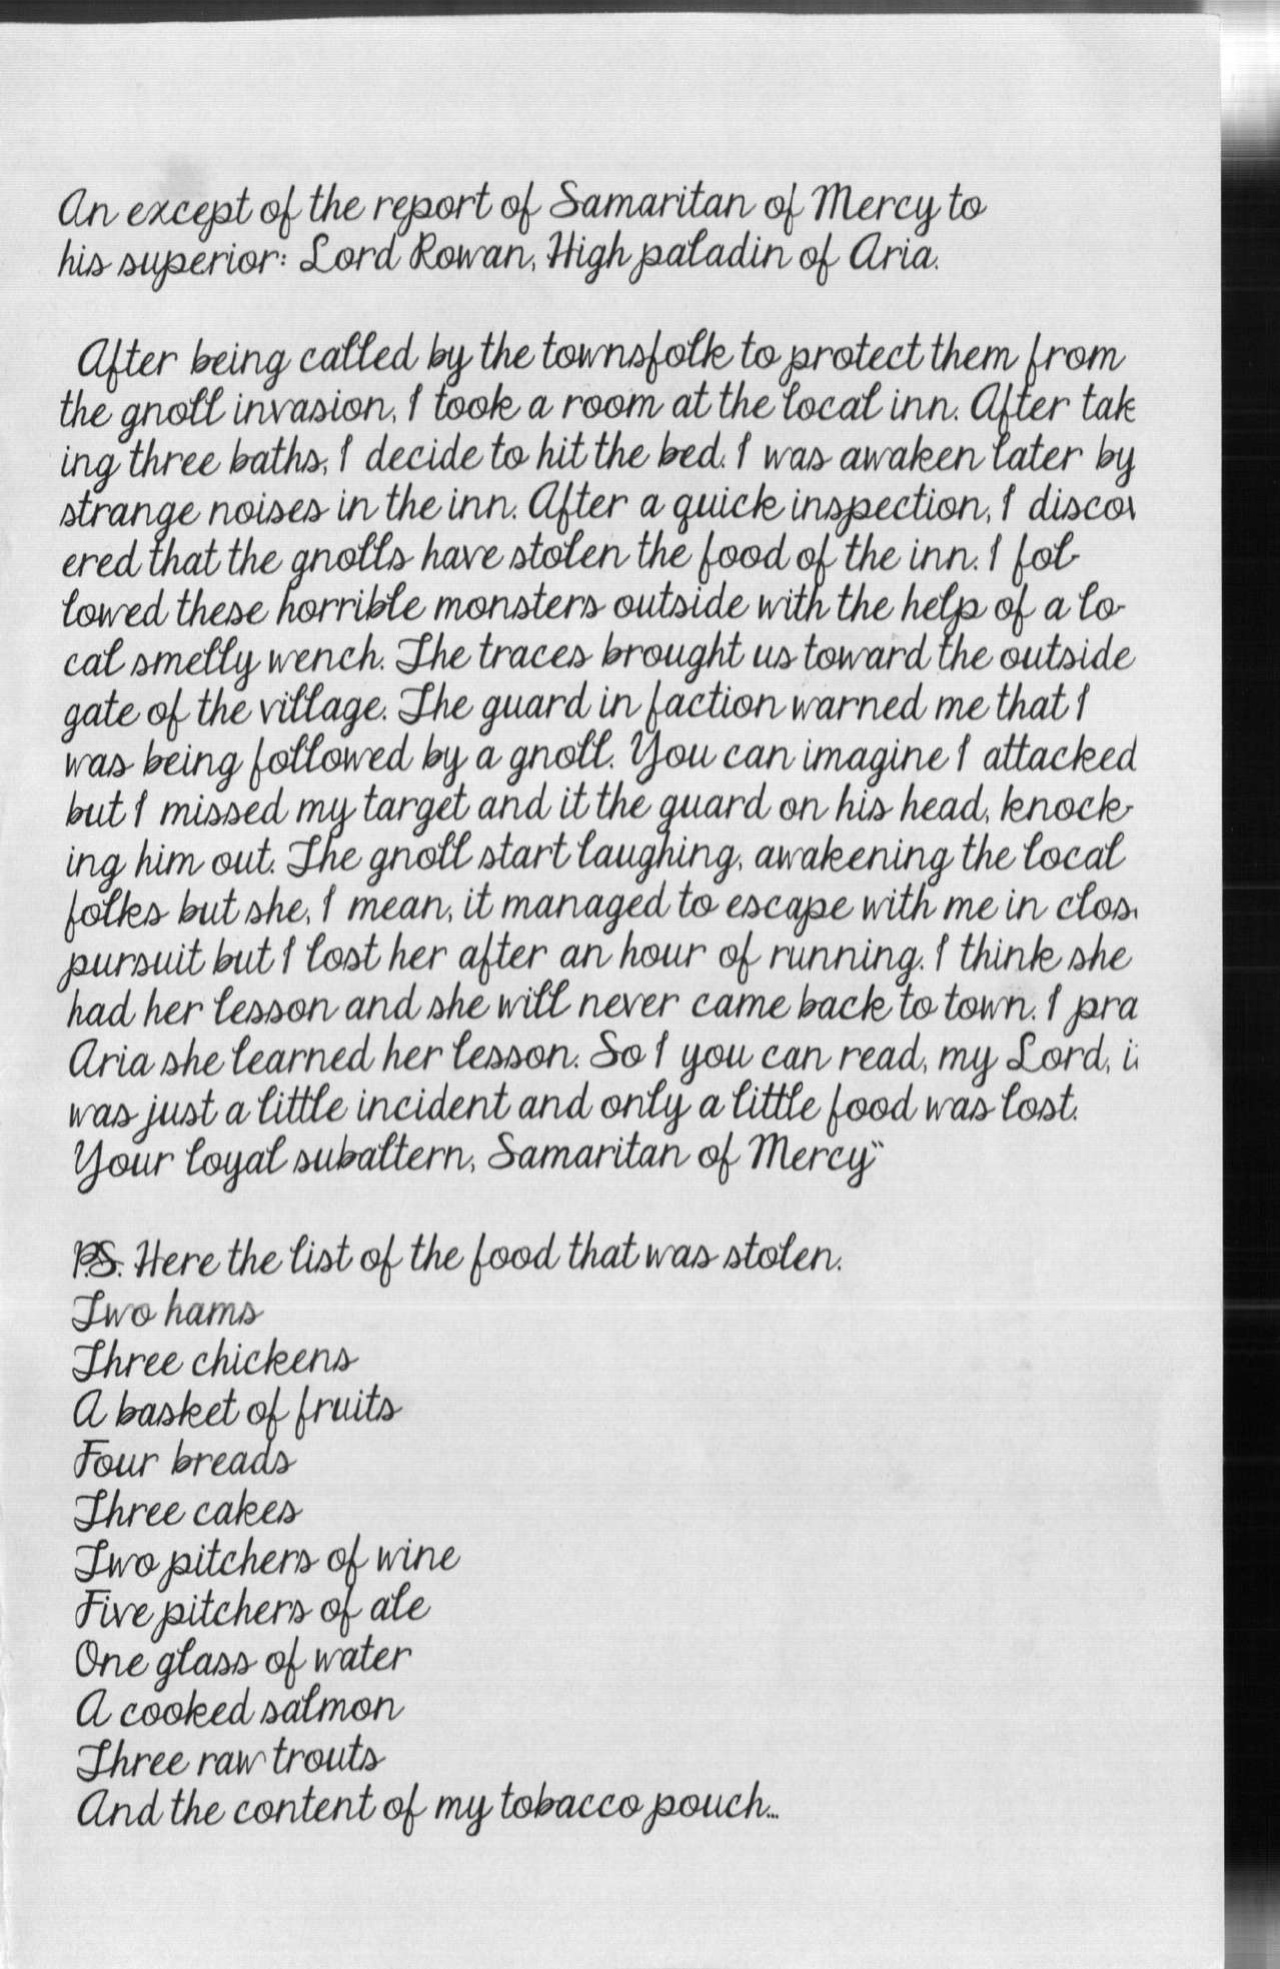 An except of the report of Samaritan of Mercy to
his superior: Lord Rowan, High paladin of Aria.
After being called by the townsfolk to protect them from
the gnoll invasion, I took a room at the local inn. After tak
ing three baths, I decide to hit the bed. I was awaken later by
strange noises in the inn. After a quick inspection, I discov
ered that the gnolls have stolen the food of the inn. I fol-
lowed these horrible monsters outside with the help of a lo-
cal smelly wench. The traces brought us toward the outside
gate of the village. The guard in faction warned me that I
was being followed by a gnoll. You can imagine I attacked
but I missed my target and it the guard on his head, knock-
ing him out. The gnoll start laughing, awakening the local
folks but she, I mean, it managed to escape with me in clos
pursuit but I lost her after an hour of running. I think she
had her lesson and she will never came back to town. I pra
Aria she learned her lesson. So I you can read, my Lord, i
was just a little incident and only a little food was lost.
Your loyal subaltern, Samaritan of Mercy"
P.S. Here the list of the food that was stolen.
Two hams
Three chickens
A basket of fruits
Four breads
Three cakes
Two pitchers of wine
Five pitchers of ale
One glass of water
A cooked salmon
Three raw trouts
And the content of my tobacco pouch...